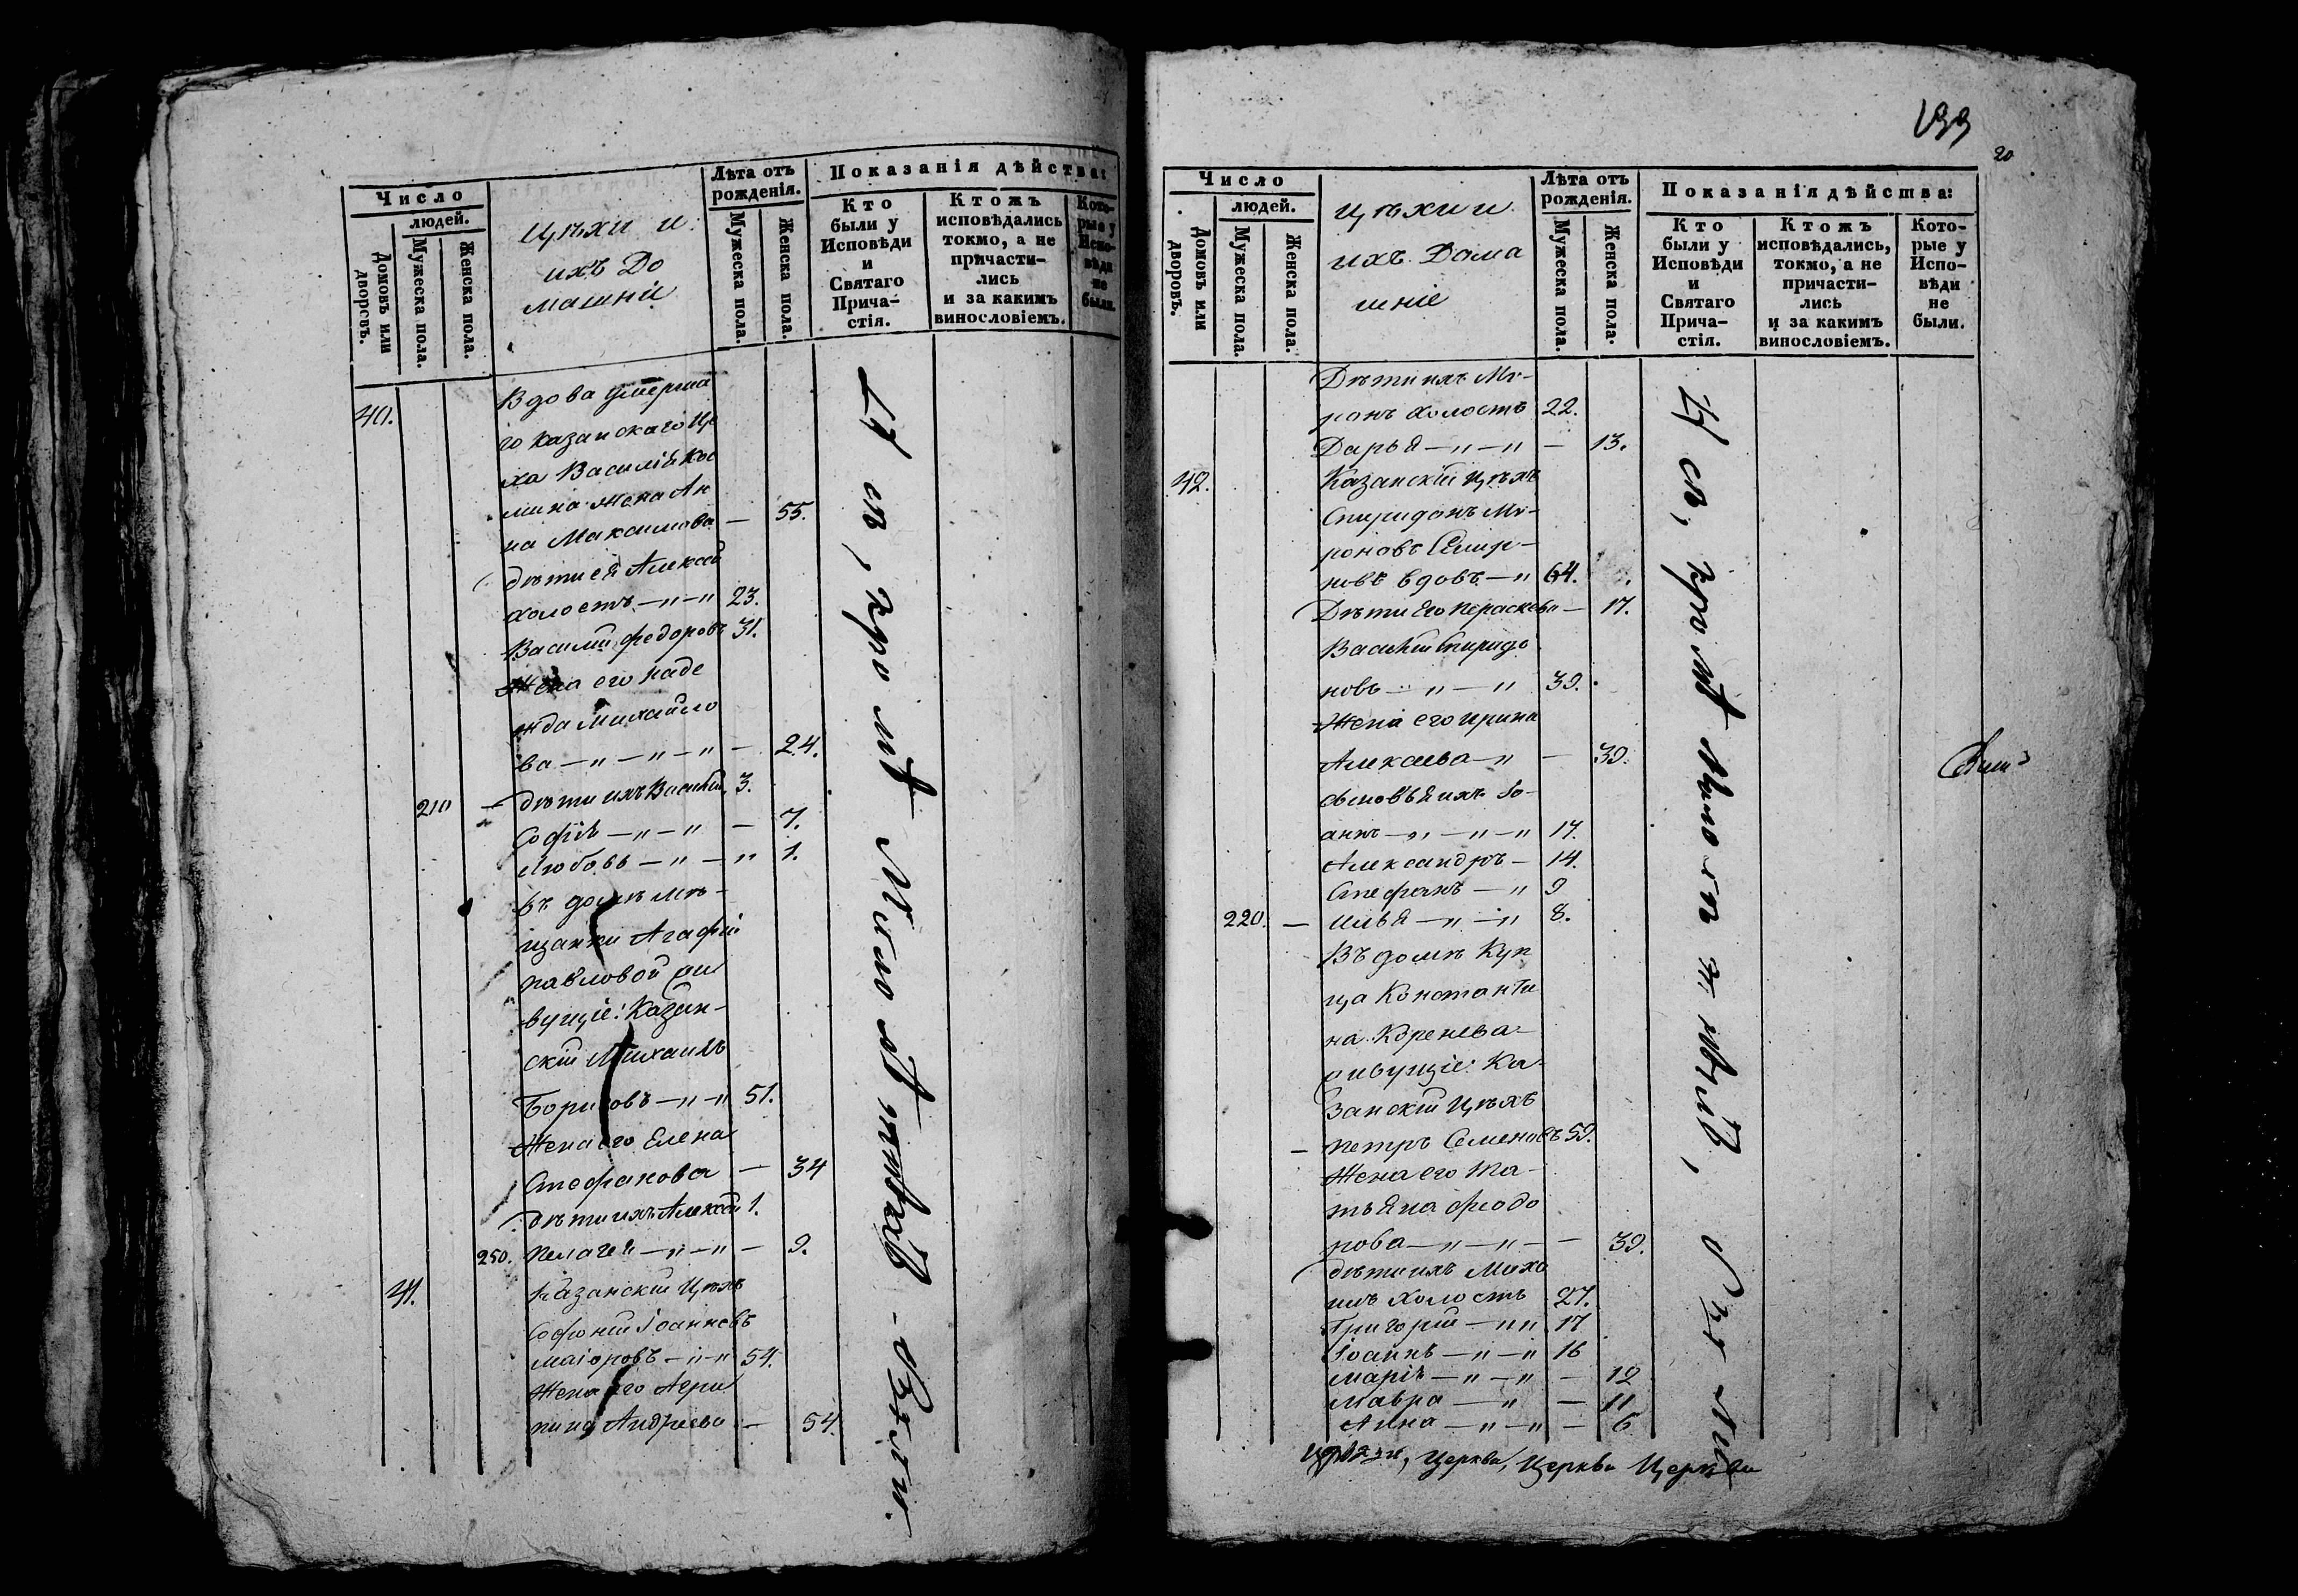 Число
людей.
Домовъ или дворовъ.
Мужеска пола.
Женска пола.
Цѣхи и
ихъ До
машніи
Лѣта отъ
рожденія.
Мужеска пола.
Женска пола.
Показанія дѣйства:
Кто
были у
Исповѣди
и
Святаго
Прича-
стія.
Ктожъ
исповѣдались
токмо, а не
причасти-
лись
и за какимъ
винословіемъ.
Кото-
рые у
Испо-
вѣди
не
были.
40.
Вдова умерша
го Казанскаго Це
ха Василія Кос
мина жена Ан
на Максимова — 55.
дѣти ея Алексѣй
холостъ — „ — „ 23.
Василий Федоровъ 31.
Жена его Наде
жда Михайло
ва — „ — „ — „ — 24.
210 — дѣти ихъ Василий 3.
Софія — „ — „ — 7.
Любовь — „ — „ 1.
Въ домѣ мѣ-
щанки Агафіи
Павловой жи
вущіе: Казан-
скій Михаилъ
Борисовъ — „ — „ 51.
Жена его Елена
Стефанова — 34
дѣти ихъ Алексѣй 1.
250. Пелагея — „ — „ — 9.
41. Казанский Цѣхъ
Софоний Іоанновъ
Маіоровъ — „ — „ 54.
Жена его Агри
пина Андреева — 54.
133
20
Число
людей.
Домовъ или дворовъ.
Мужеска пола.
Женска пола.
Цѣхи и
ихъ Дома
шніе
Лѣта отъ
рожденія.
Мужеска пола.
Женска пола.
Показанія дѣйства:
Кто
были у
Исповѣди
и
Святаго
Прича-
стія.
Ктожъ
исповѣдались,
токмо, а не
причасти-
лись
и за какимъ
винословіемъ.
Кото-
рые у
Испо-
вѣди
не
были.
Дѣти ихъ Ми-
ронъ холостъ 22.
Дарья — „ — „ — 13.
42. Казанскій Цѣхъ
Спиридонъ Ми-
роновъ Смир-
новъ вдовъ — „ 64.
Дѣти Его Параскева — 17.
Василий Спиридо
новъ — „ — „ 39.
Жена его Ирина
Алексева — „ — 39.
Сыновья ихъ Іо-
аннъ — „ — „ — „ 17.
Александръ — 14.
Стефанъ — „ 9
220. — Илья — „ — „ 8.
Въ домѣ Куп
ца Константи
на Коренева
живущіе: Ка-
занскій Цѣхъ
— Петръ Семеновъ 59.
Жена его Та-
тьяна Федо
рова — „ — „ — — 39.
дѣти ихъ Миха
илъ холостъ 27.
Григорий — „ „ 17
Іоаннъ — „ — „ 16
Марія — „ — „ — 12
Мавра — „ — 11
Анна — „ — „ — 6
Церкви, Церкви Церкви